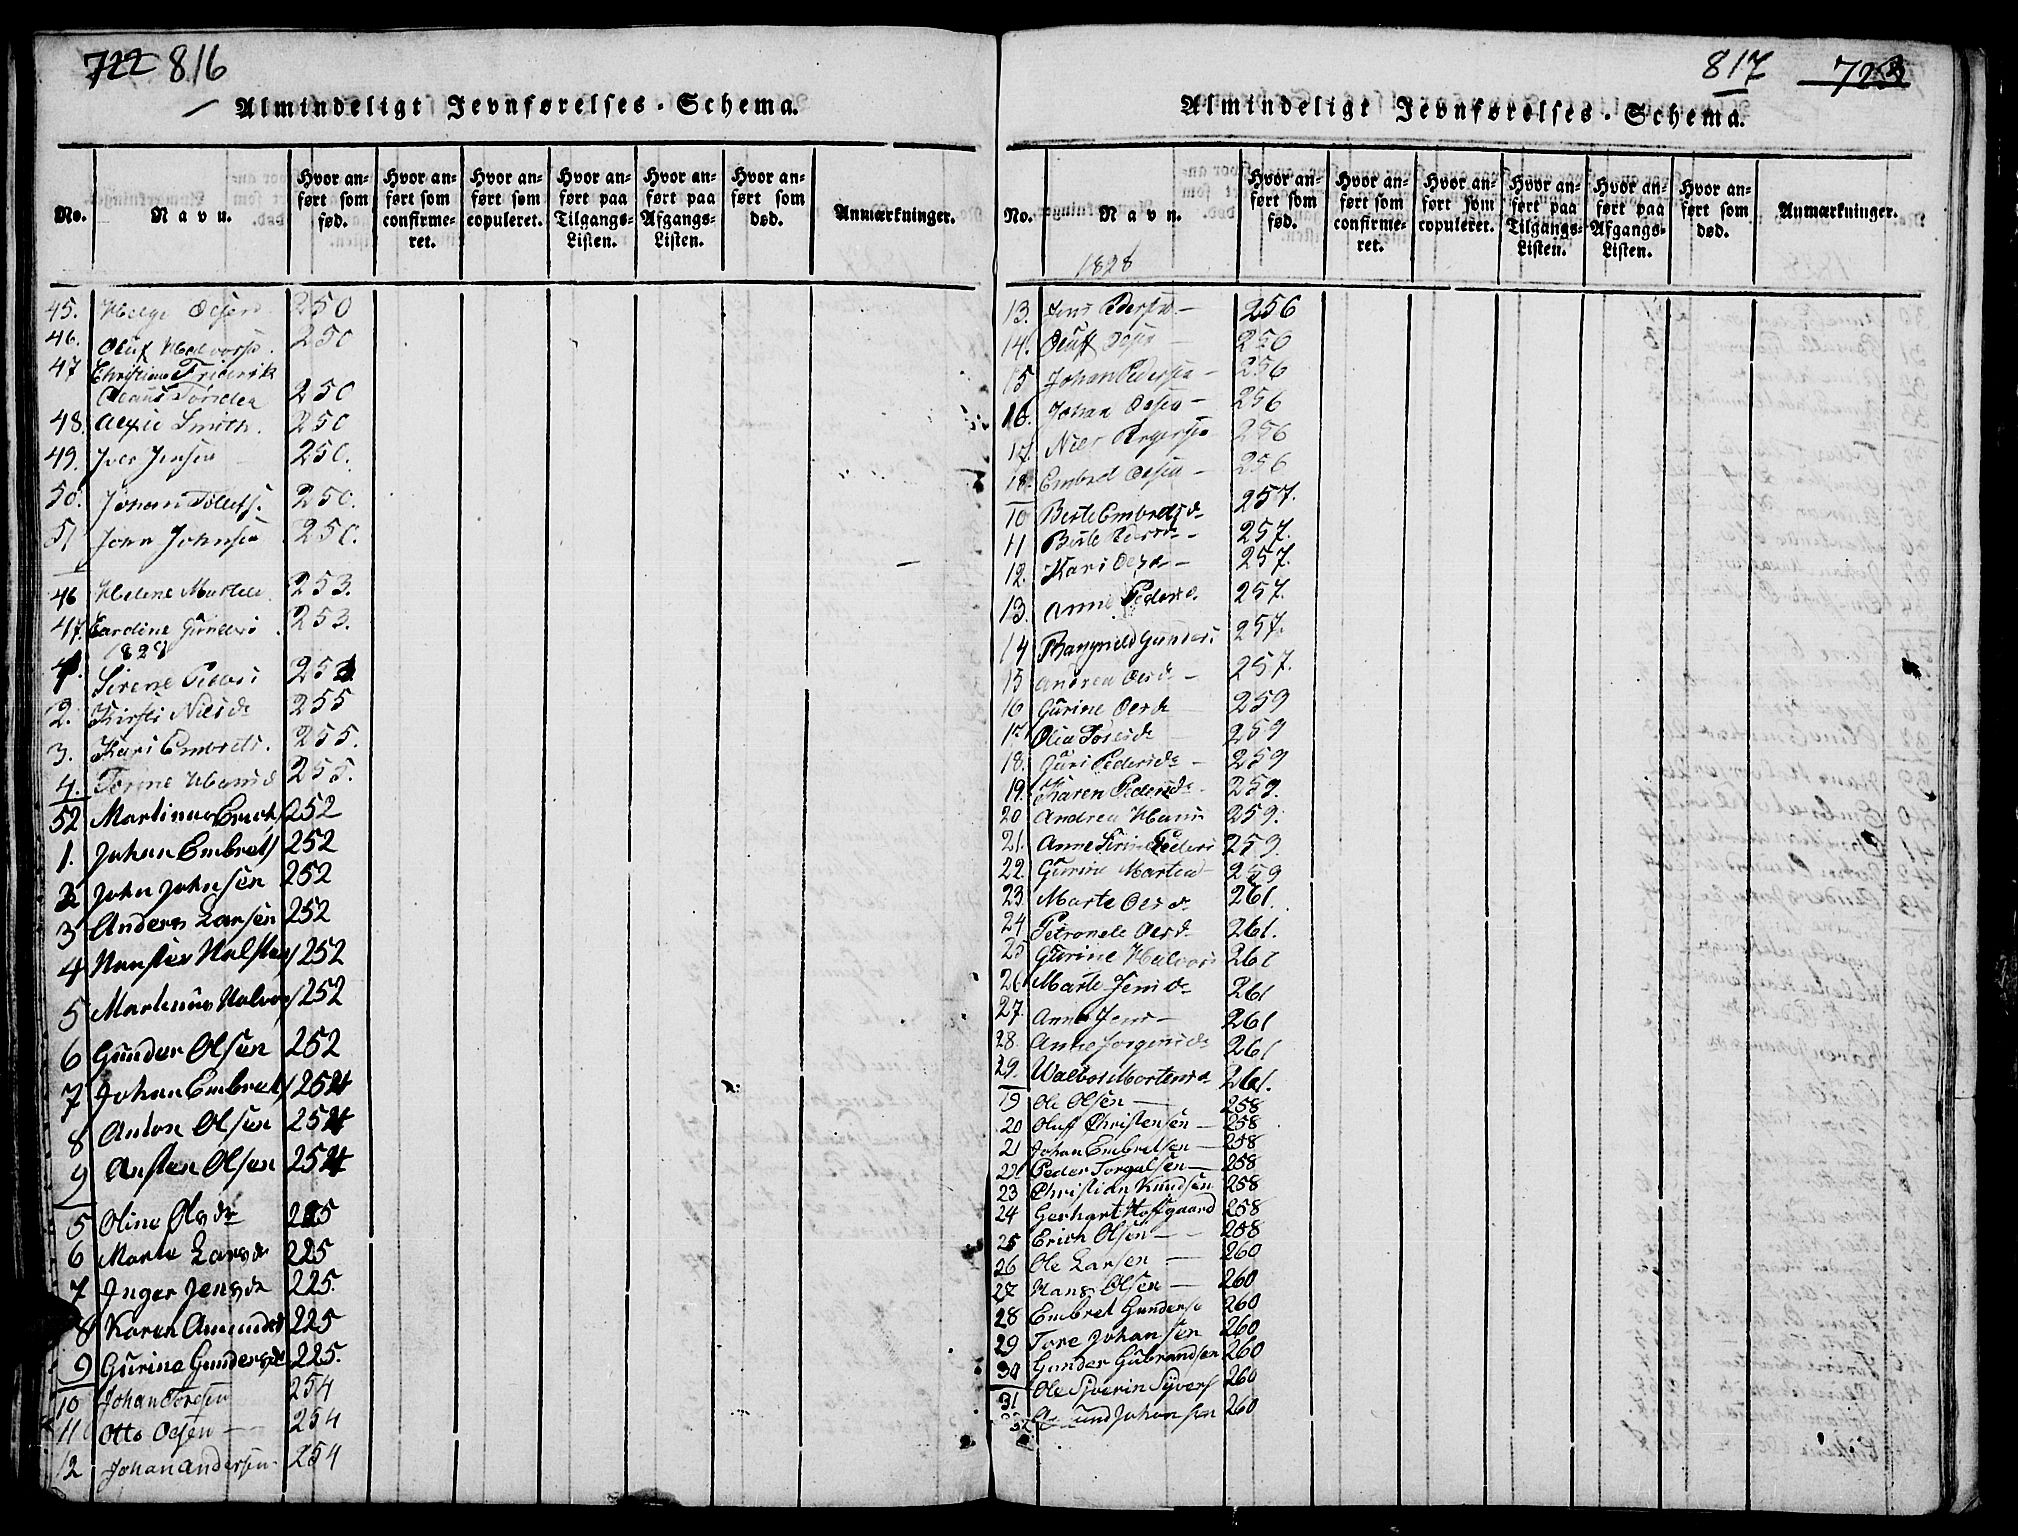 722 816
Almindeligt Jevnførelses-Schema.
No.
Navn.
Hvor anført som fød.
Hvor anført som confirmeret.
Hvor anført som copuleret.
Hvor anført paa Tilgangs-Listen.
Hvor anført paa Afgangs-Listen.
Hvor anført som død.
Anmærkninger.
45. Helge Olsen 250
46. Oluf Halvorsn. 250
47 Christian Friderik
250
48. Smith. 250
49. Iver Jensen 250.
50. Johan 250.
51 John Johnsen 250.
46 Helene 253.
47. Gunders 253.
1827
1. Sirene Peders 253
2. Kirsti Nilsd 255
3. Kari Embrets. 255.
4. Torine Hansd 255.
52 Martinus Erichs 252
1. Johan Embrets 252
2 John Johnsen 252
3 Anders Larsen 252
4 252
5 Martinus Halvors 252
6 Gunder Olsen 252
7 Johan Embrets 254
8 Anton Olsen 254
9 Ansten Olsen 254
5 Oline Olsdr 225
6 Marte Larsd 225
7 Inger Jensd 225.
8 Karen Amunds 225
9 Gurine Gundersd 225.
10 Johan Toresen 254
11 Otto Olsen 254
12 Johan Andersen 254
817 723
Almindeligt Jevnførelses-Schema.
No.
Navn.
Hvor anført som fød.
Hvor anført som confirmeret.
Hvor anført som copuleret.
Hvor anført paa Tilgangs-Listen.
Hvor anført paa Afgangs-Listen.
Hvor anført som død.
Anmærkninger.
1828
13. Jens Pedersen 256
14. Oluff Olsen 256
15 Johan Pedersen 256
16. Johan Olsen 256
17. Niels 256
18. Embret Olsen 256
10 Berte Embretsd 257.
11 Berte 257.
12. Kari Olsd 257.
13. Anne Pedersd. 257.
14 Rangnild Gunders 257.
15 Andrea Olsd 257.
16 Gurine Olsd 259
17 Olea Toresd 259
18. Guri Pedersd 259
19. Karen Pedersd 259.
20 Andrea Hans 259.
21. Anne Peders 259.
22. Gurine Martea 259
23. Marte Olsd 261.
24 Petronele Olsd 261.
25 Gurine Halvors 261
26 Marte Jensd 261
27. Anne Jens 261
28. Anne Jorgensd 261
29. Walbor Mortensd 261.
19 Ole Olsen 258
20 Oluf Christensen 258
21 Johan Embretsen 258
22 Peder Torgalsen 258
23 Christian Knudsen 258
24 Gerhart Hofgaard 258
25 Erich Olsen 258
26 Ole Larsen 260
27 Hans Olsen 260
28 Embret Gunderse 260
29 Tore Johansen 260
30 Gunder Gubrandsen 260
31 Ole Syverin Syvers 260
32 Johansen 260